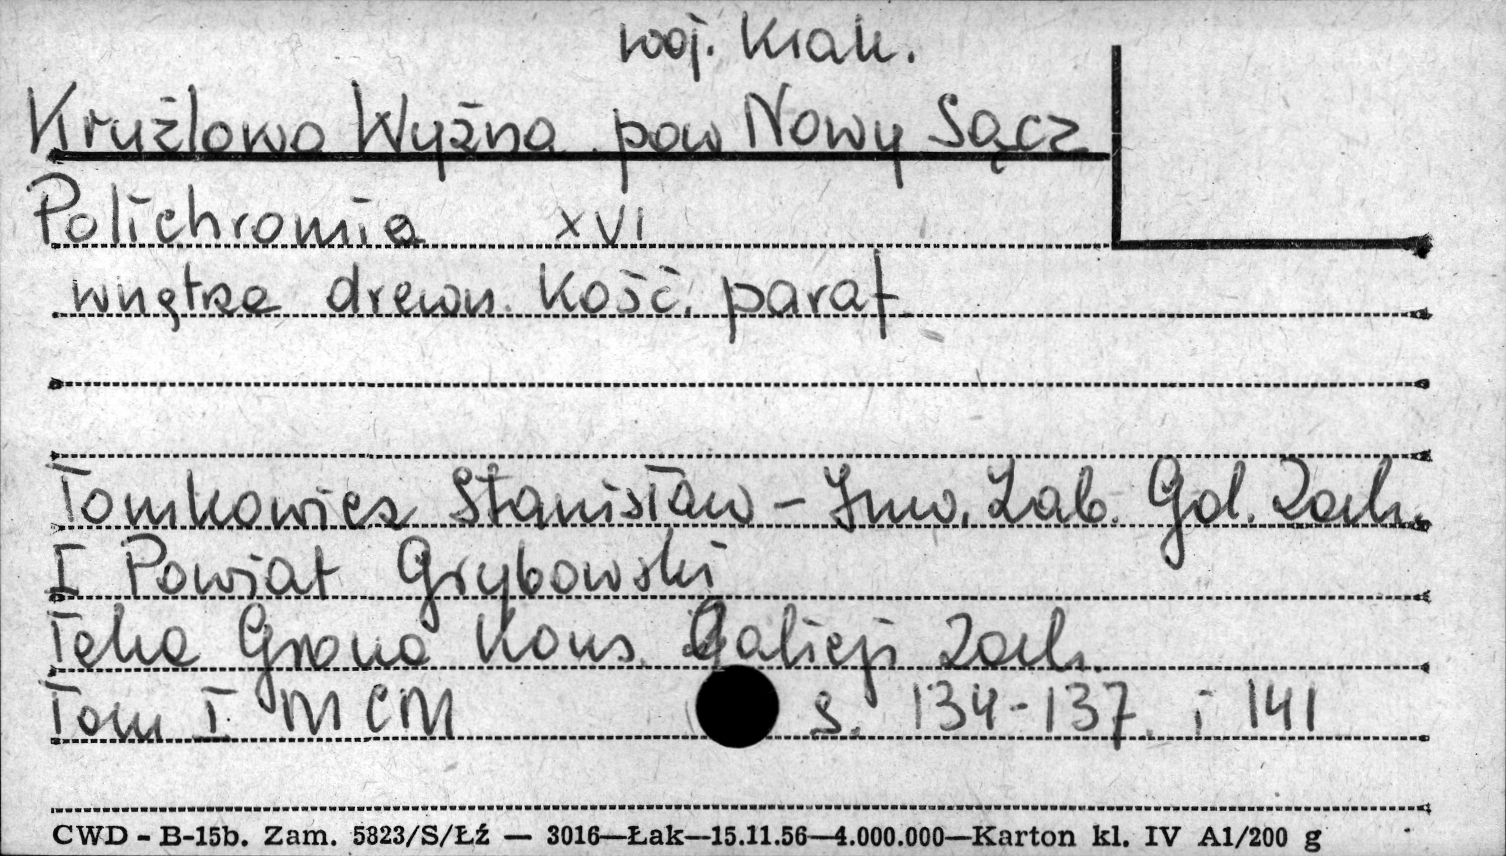 woj. Krak.
Krużlowa Wyżna pow Nowy Sącz
Polichromia XVI
wnętrze drewn. kość. paraf.
Tomkowicz Stanisław – Inw. Zab. Gal. Zach.
I Powiat Grybowski
Teka Grona Kons. Galicji Zach.
Tom I MCM s. 134-137. i 141
CWD - B-15b. Zam. 5823/S/Łź — 3016—Łak—15.11.56—4.000.000—Karton kl. IV A1/200 g